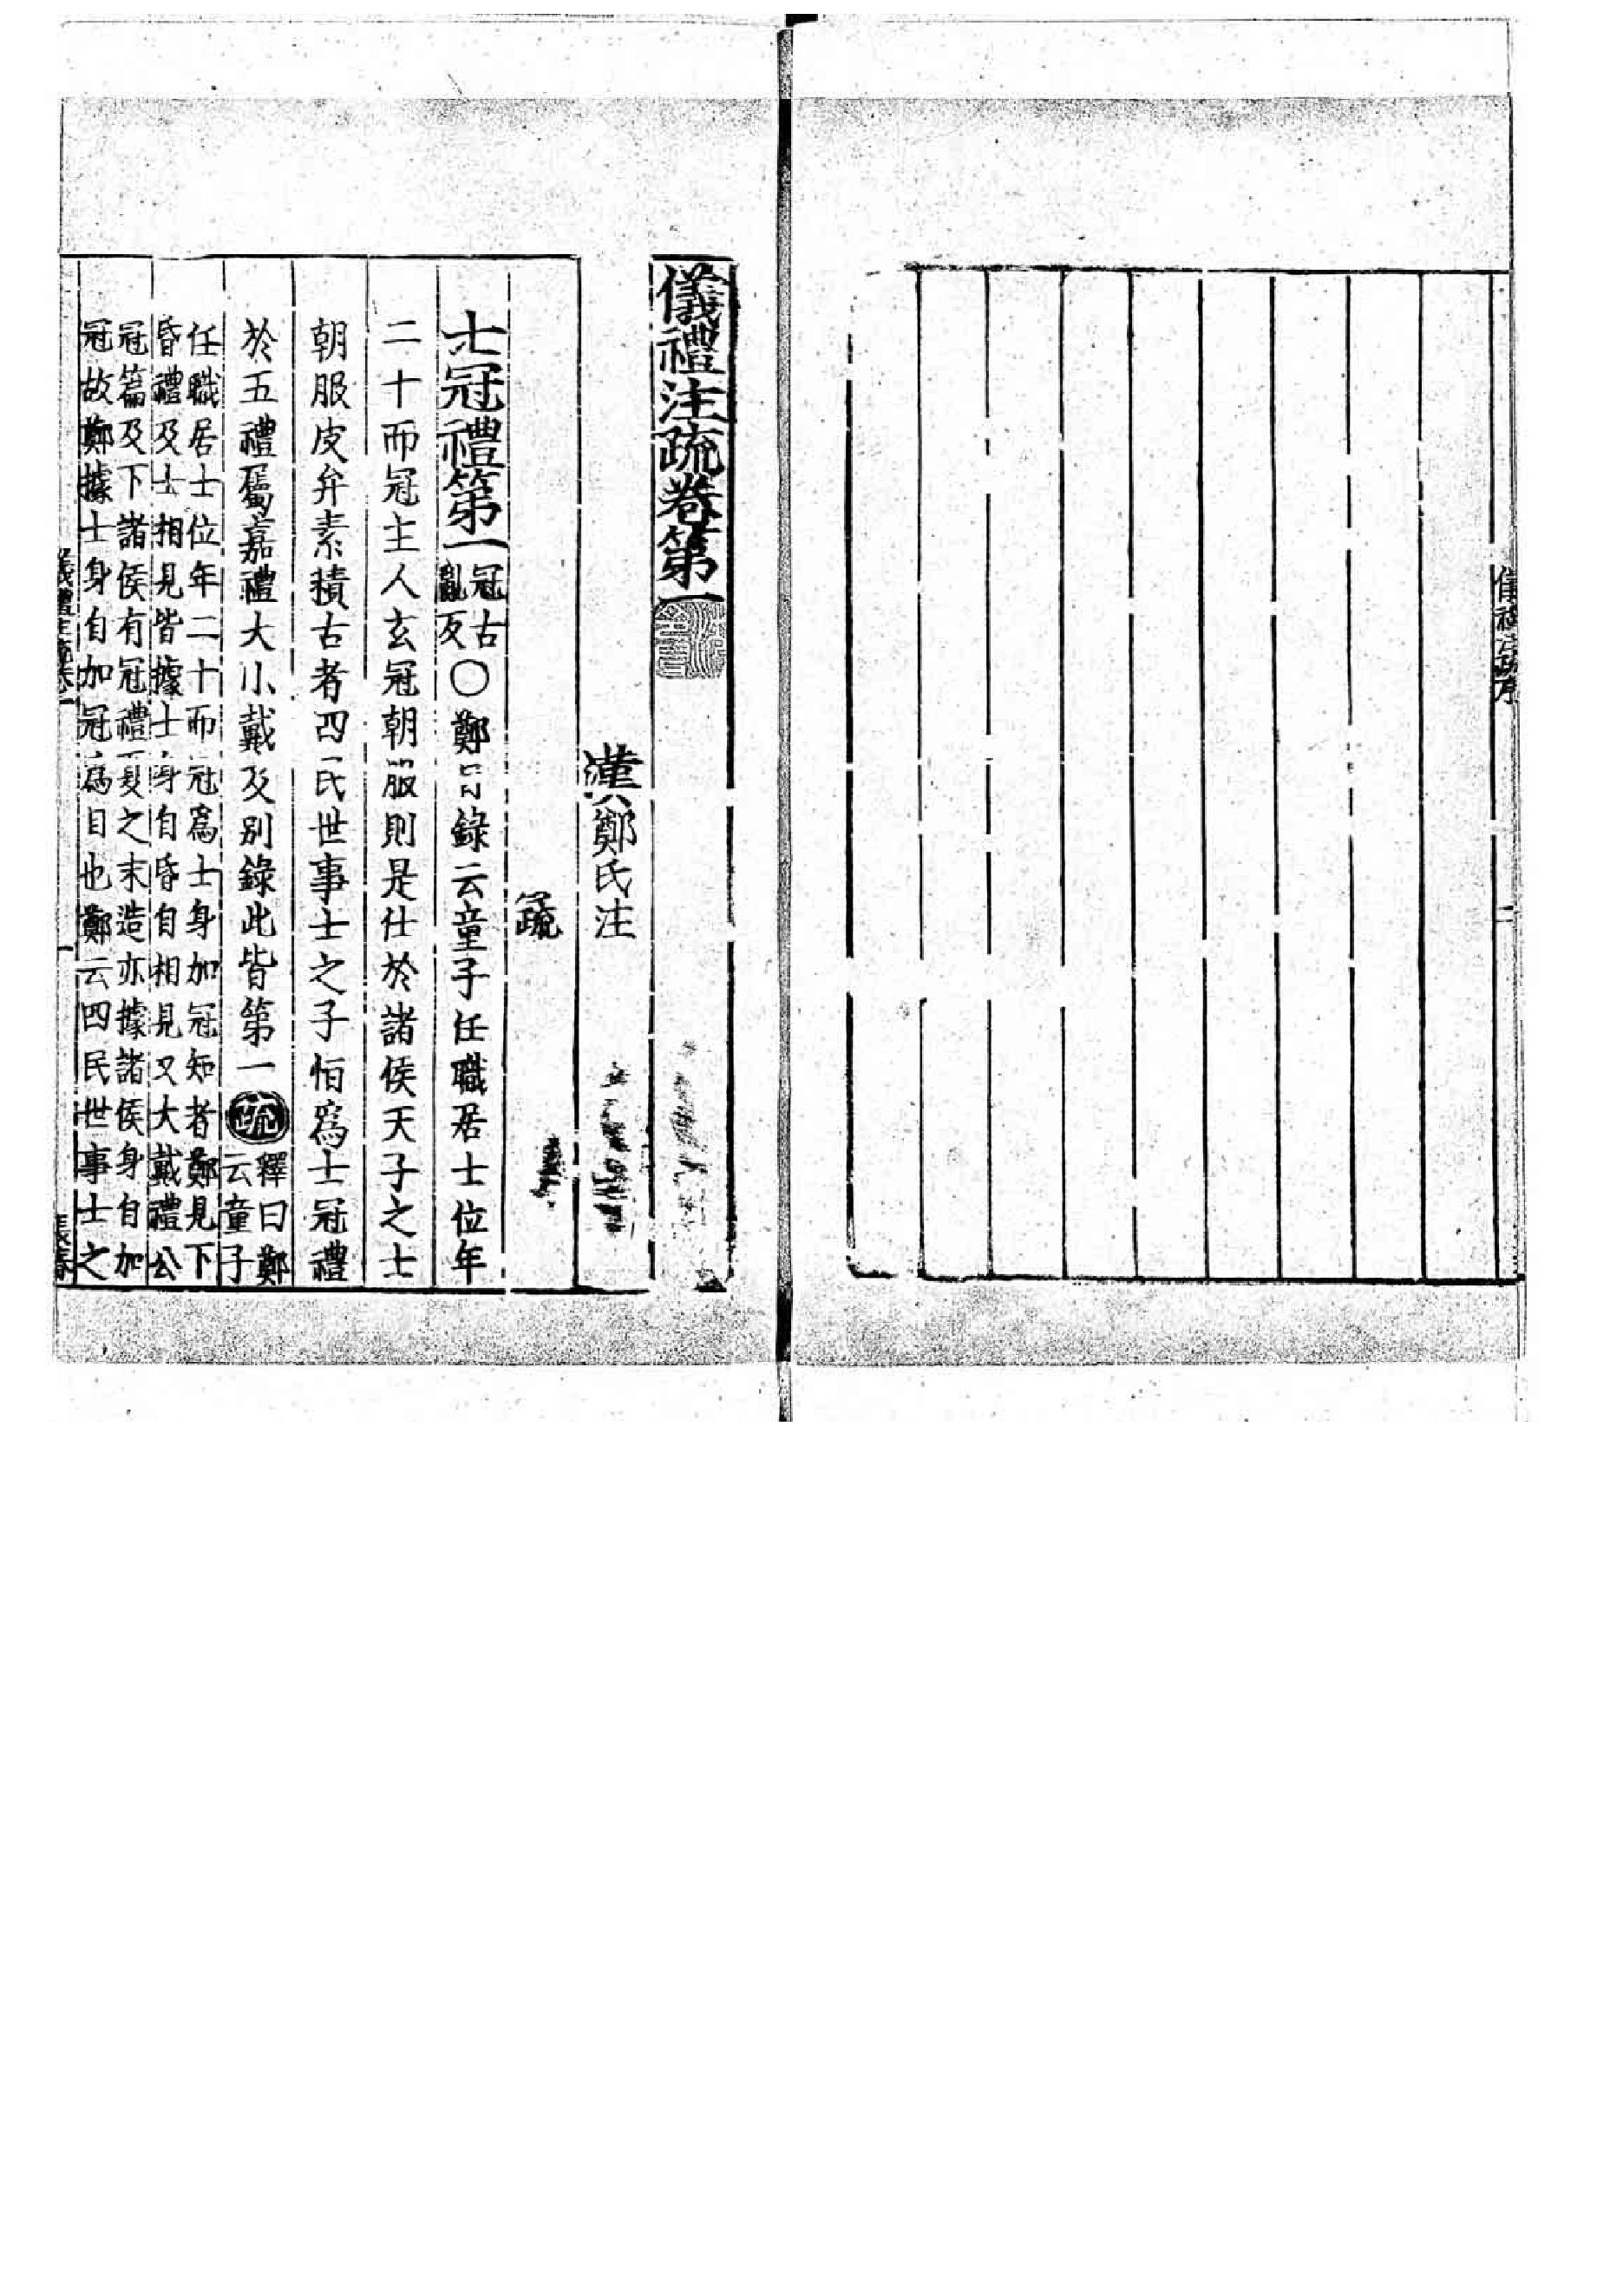 儀禮注疏卷第一
漢鄭氏注
疏
士冠禮第一冠古亂反○鄭目錄云童子任職居士位年
二十而冠主人玄冠朝服則是仕於諸侯天子之士
朝服皮弁素積古者四民世事士之子恒為士冠禮
於五禮屬嘉禮大小戴及別錄此皆第一疏釋曰鄭
云童子
任職居士位年二十而冠爲士身加冠知者鄭見下
昏禮及士相見皆據士身自昏自相見又大戴禮公
冠篇及下諸侯有冠禮夏之末造亦據諸侯身自加
冠故鄭據士身自加冠爲目也鄭云四民世事士之
儀禮注疏卷一
一
儀禮注疏序
二